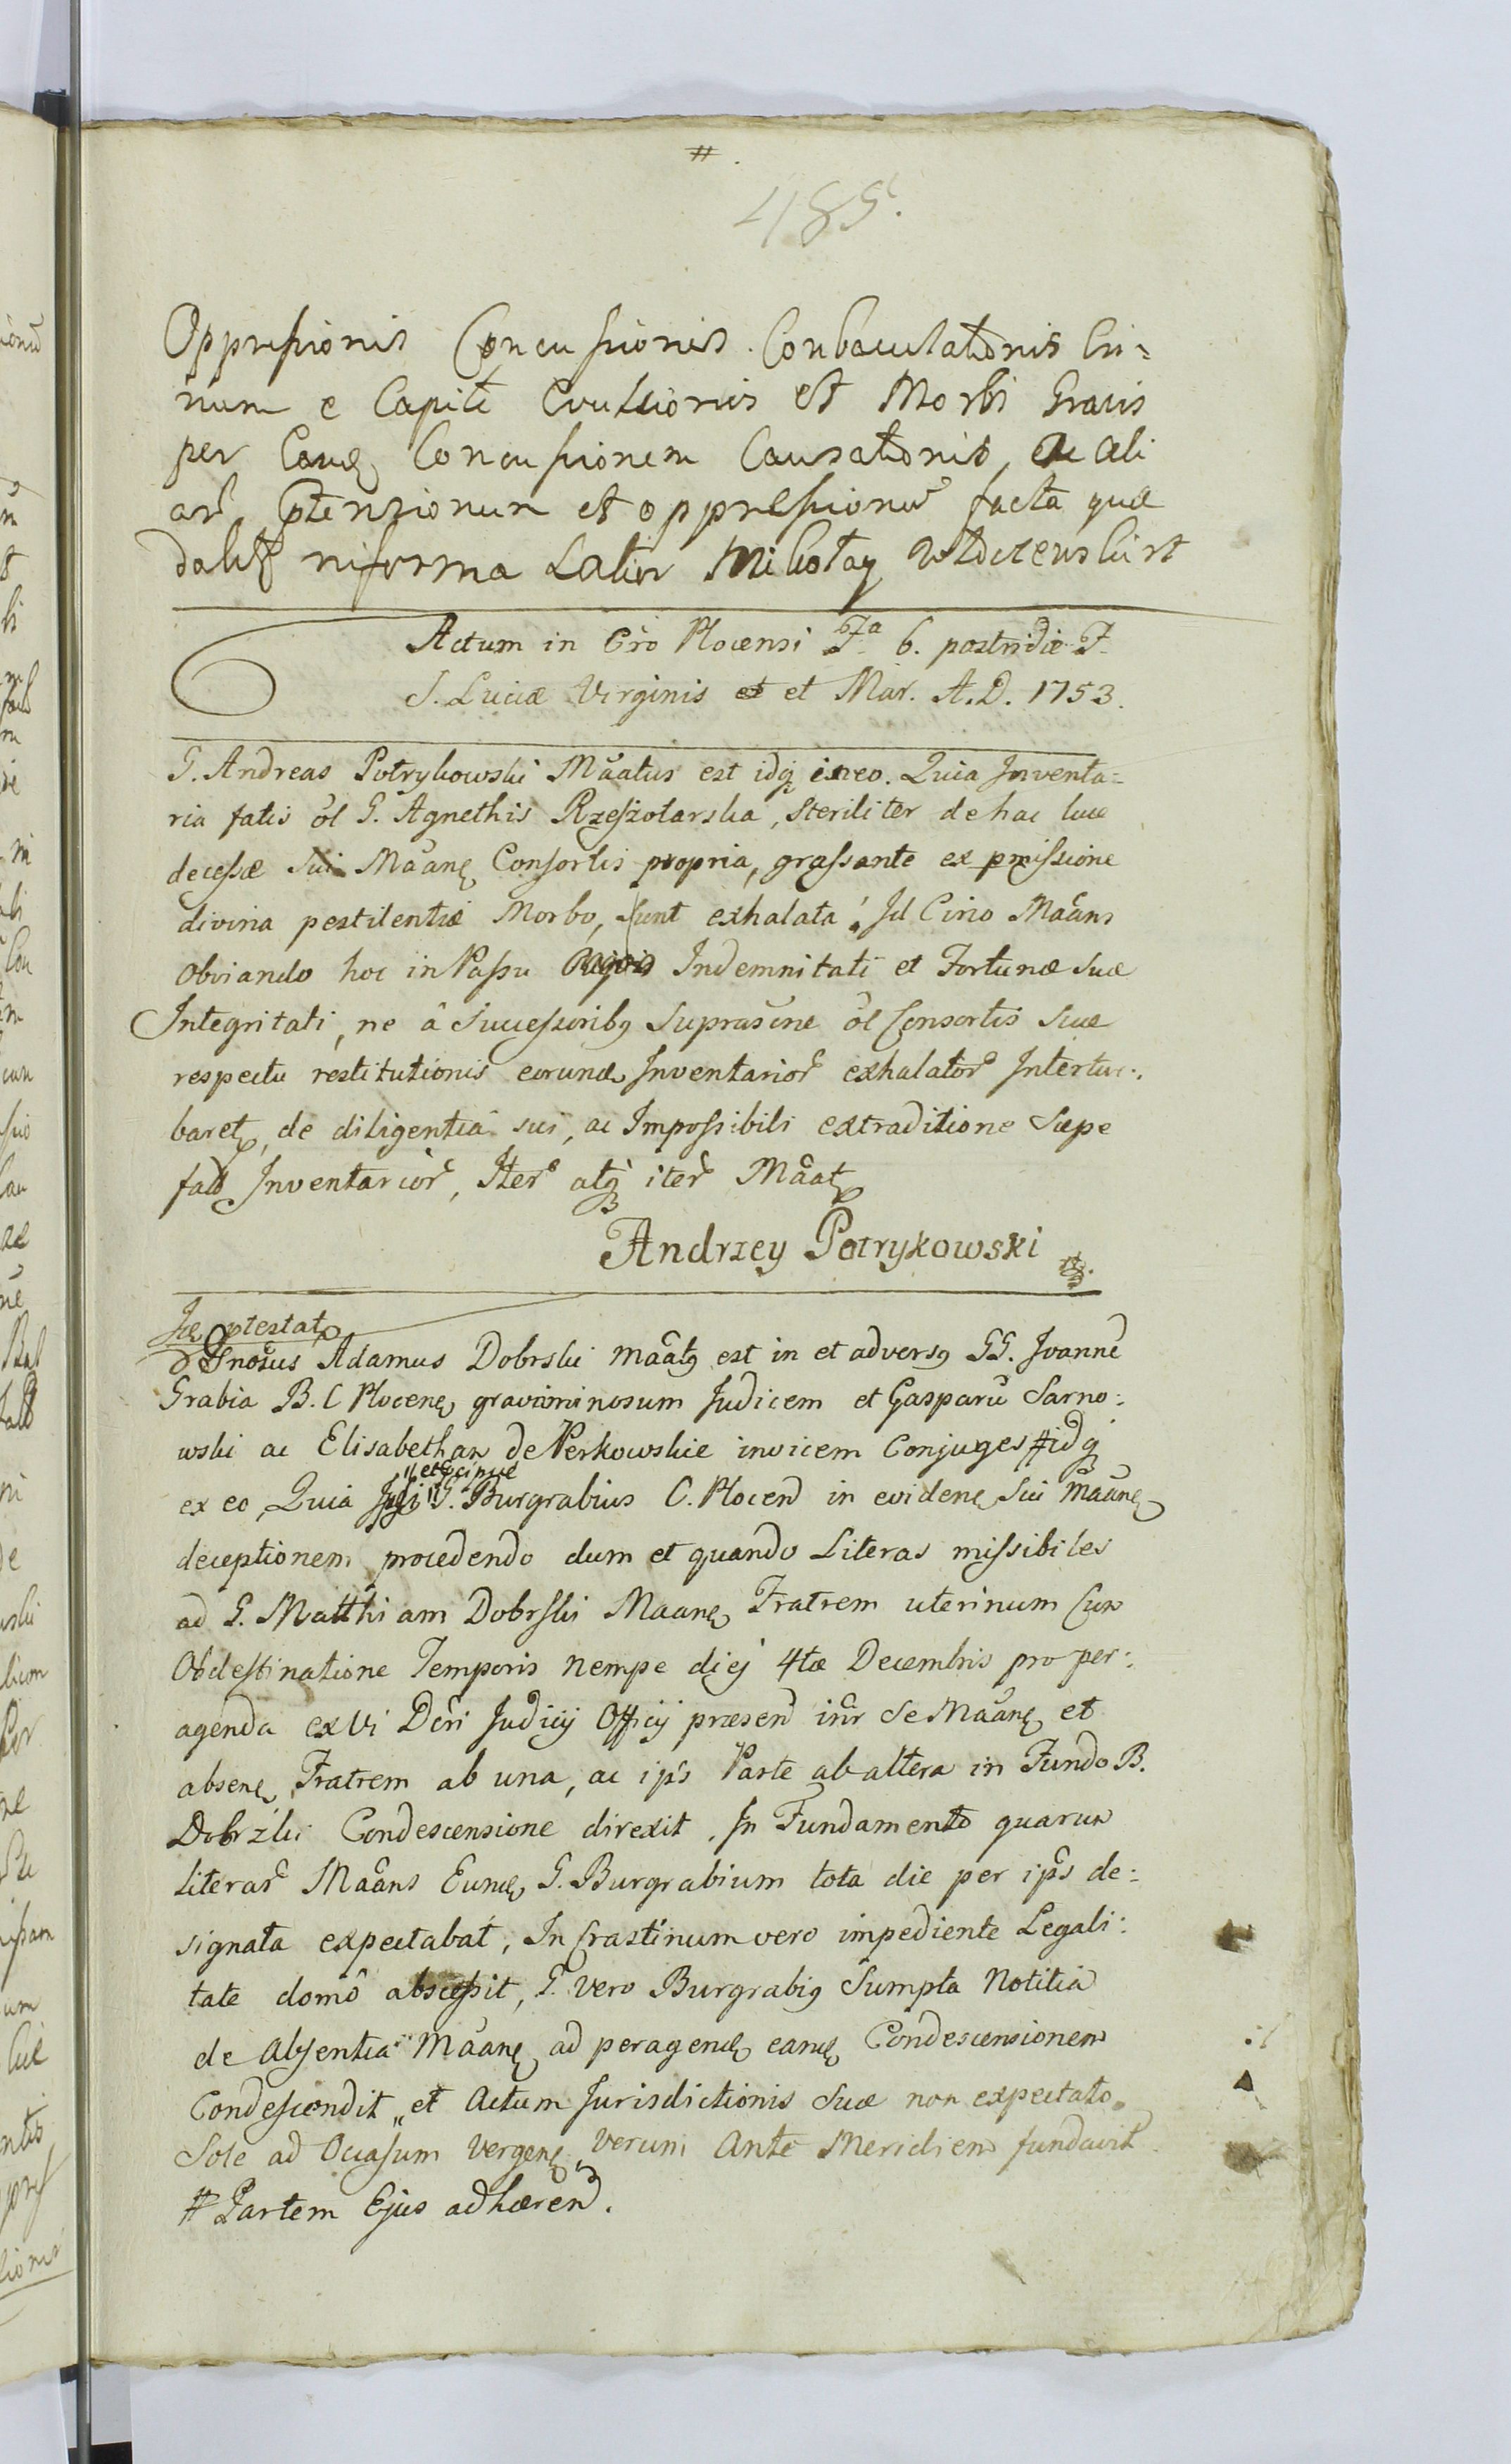 #.
485.
Oppressionis Concussionis Conbaculationis Cri=
nium e Capite Evulsionis et Morbi Gravis
per Eandę Concussionem Causationis, ac ali
arũ Ptensionum et oppressionũ facta quæ
dabit͛ in forma Latior Mikołay
Actum in Cro̊ Plocensi Fa 6. postridie F.
S. Luciæ Virginis et et Mar. A.D. 1753.
G. Andreas Potrykowski Mãatus est idq́ exeo. Quia Inventa=
ria fatis ol̃ G. Agnethis Rzeszotarska, Steriliter de hac luce
decessæ Sui Mãanę Consortis propria, grassante ex pmissione
divina pestilentiæ Morbo, sunt exhalata. Id Circo Mãans
Obviando hoc in Passu Indemnitati et Fortunæ Suæ
Integritati, ne â Successoribꝯ Suprascñe ol̃ Consortis Suæ
respectu restitutionis eorundę Inventariorũ exhalatorũ Intertur:
baretꝭ, de diligentia sui, ac Impossibili extraditione Sæpe
fatd Inventariorũ, Iterũ atq́ iterũ Mãatꝭ
Andrzey Potrykowski
Idę ptestatꝭ
Gnosus Adamus Dobrski mãatꝯ est in et adversꝯ GG. Joannẽ
Grabia B. C Plocenę gravaminosum Judicem et Gasparũ Sarno:
wski ac Elisabetham de Perkowskie invicem Conjuges # idq́
ex eo, Quia " et pcipue " G. Burgrabius C. Plocend in evidenę Sui Mãanę
deceptionem procedendo dum et quando Literas missibiles
ad G. Matthiam Dobrski Maanę Fratrem uterinum Cum
Obdestinatione Temporis nempe diej 4tæ Decembris pro per:
agenda ex Vi Dc̃ri Judicij Officij præsend inr̃ Se Mãanę et
absenę Fratrem ab una, ac ip̃s Parte ab altera in Fundo B.
Dobrzki Condescensione direxit. In Fundamento quarum
Literarũ Mãans Eundę G. Burgrabium tota die per ip̃s de:
signata expectabat, In Crastinum vero impediente Legali:
tate domô abscessit, G. vero Burgrabiꝯ Sumpta Notitia
de Absentia Mãanę ad peragendę eandę Condescensionem
Condescendit " et Actum Jurisdictionis Suæ non expectato
Sole ad Occasum Vergenę " Verum Ante Meridiem fundavit
# Partem Ejus adhærend.